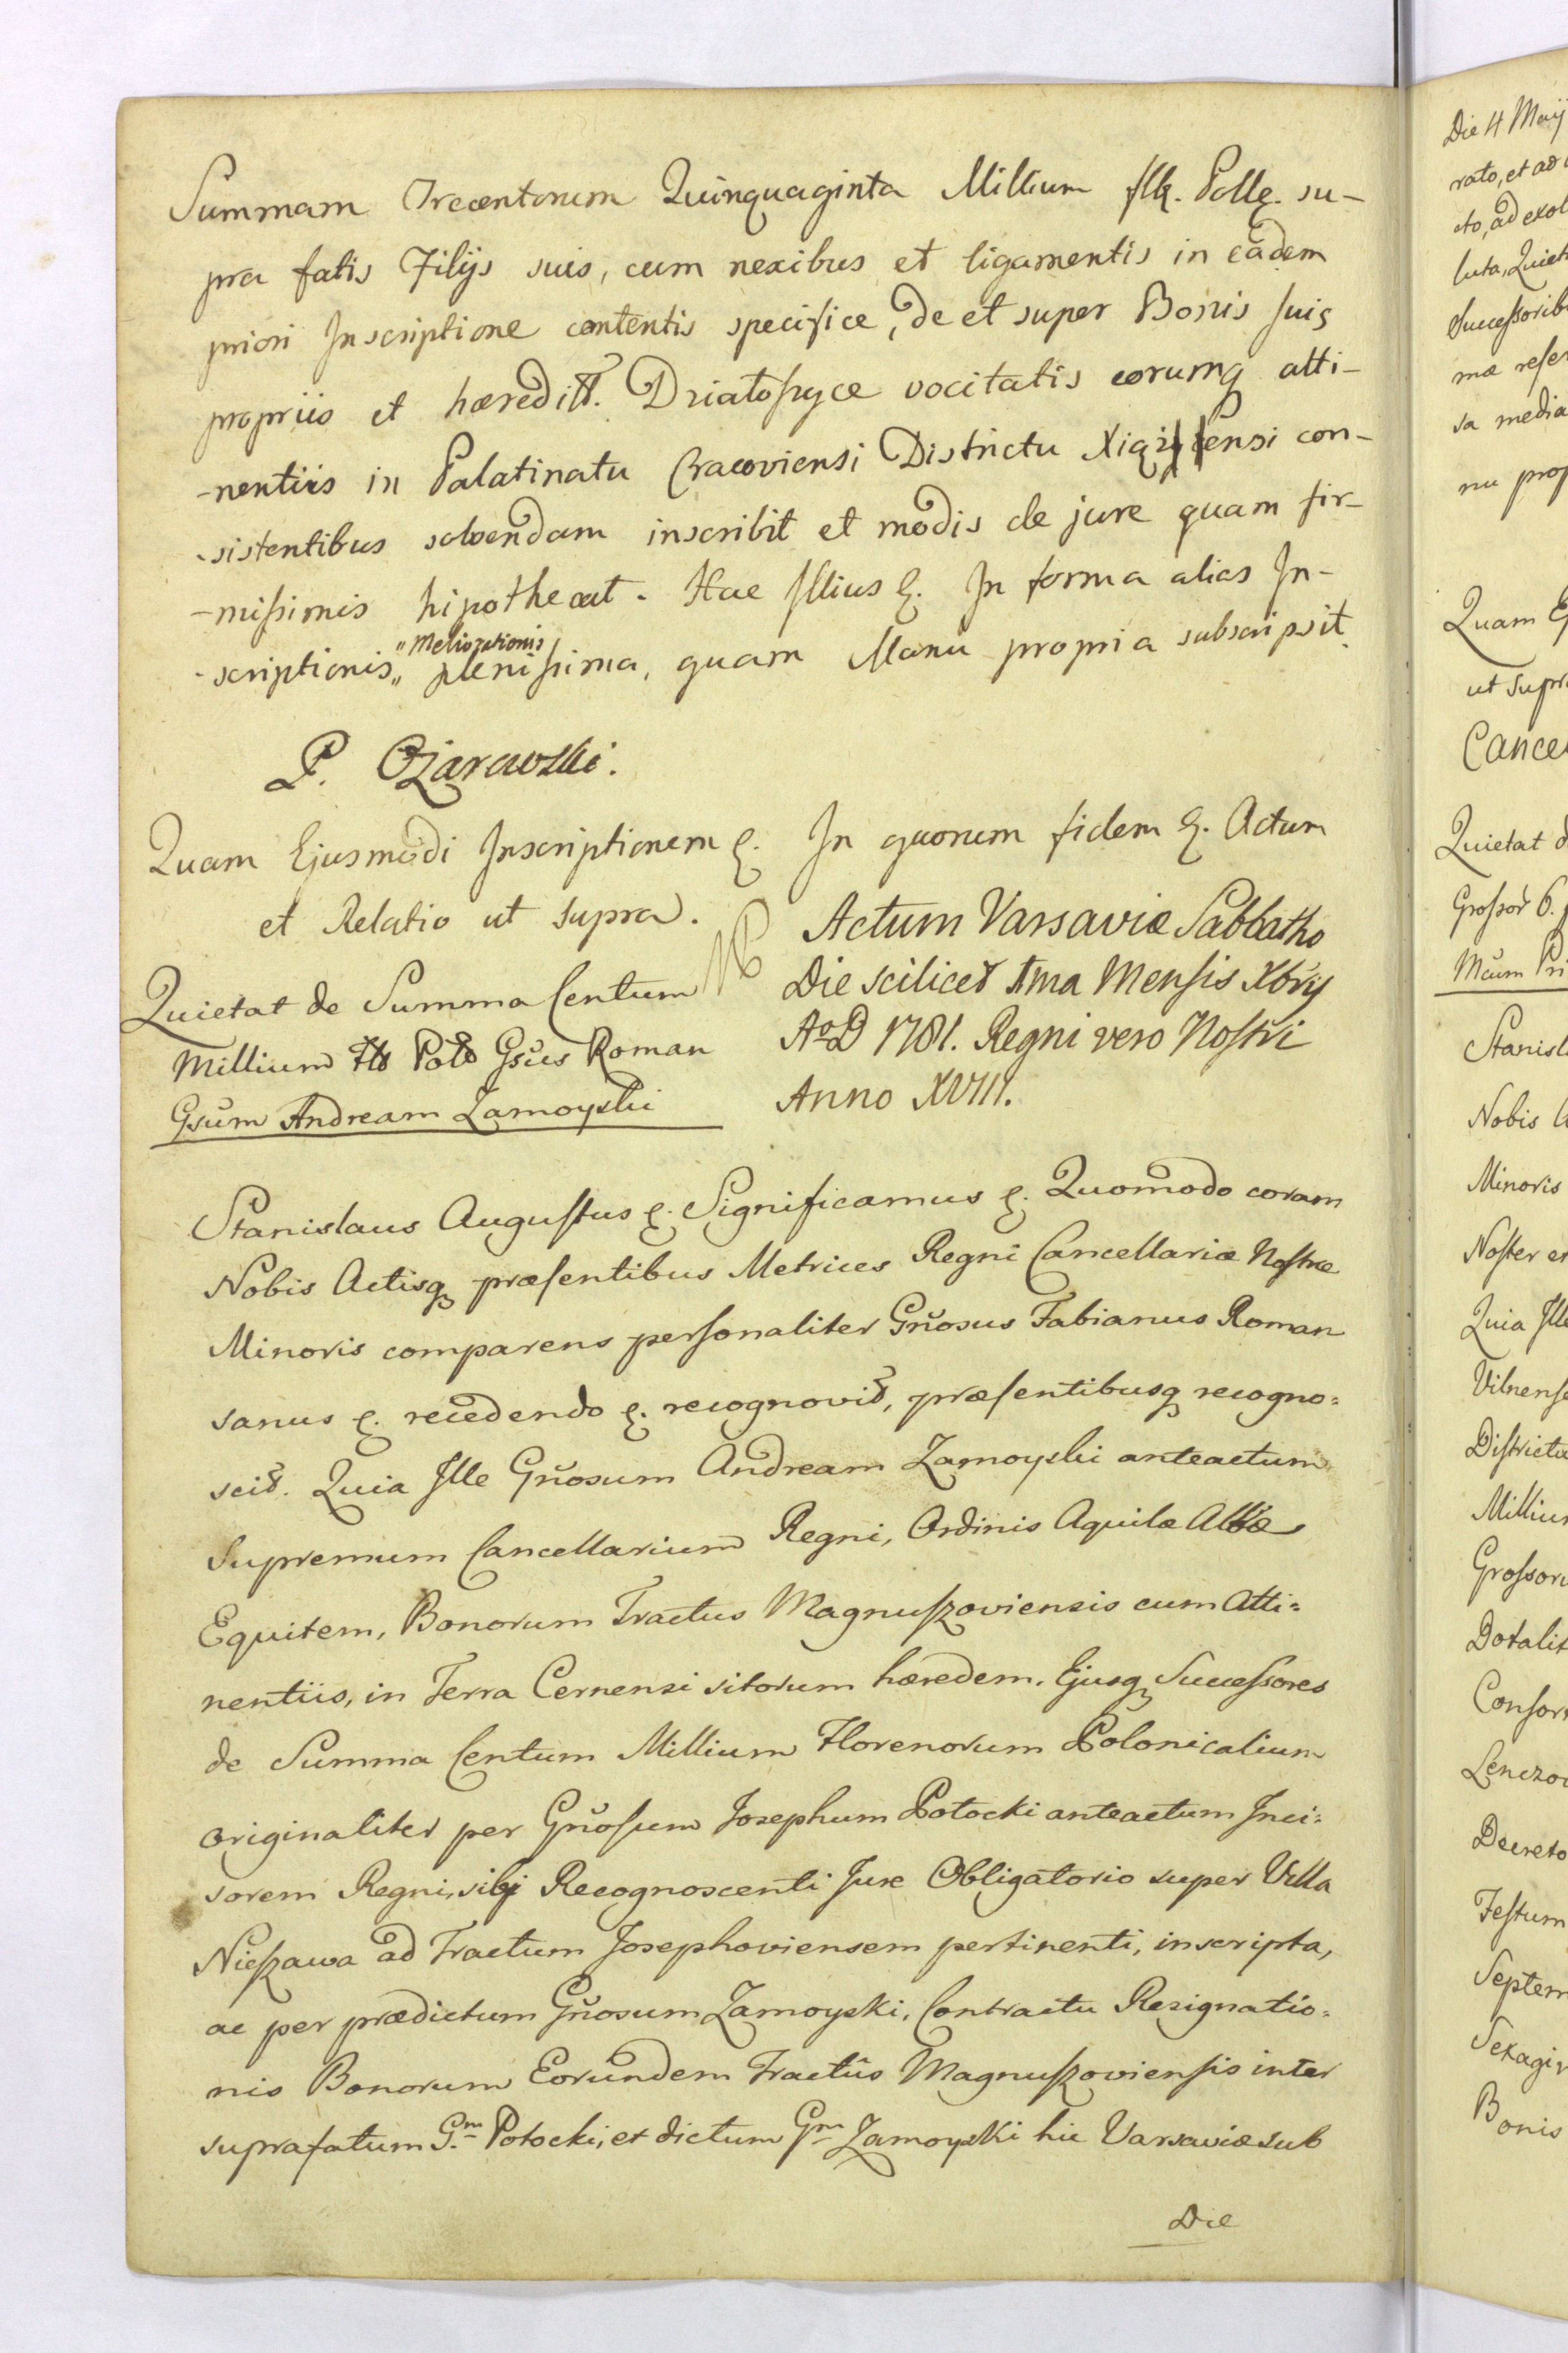 Summam Trecentorum Quinquaginta Millium flr. Polle. su-
pra fatis Filijs suis, cum nexibus et ligamentis in eadem
priori Inscriptione contentis specifice, de et super Bonis suis
propriis et hæreditt. Dziatoszyce vocitatis eorumq atti-
-nentiis in Palatinatu Cracoviensi Districtu con-
-sistentibus solvendam inscribit et modis de jure quam fir-
-missimis hipothecat. Hac Illius &. In forma alias In-
-scriptionis „ "Meliorationis plenissima, quam Manu propria subscripsit.
P. Ożarowski.
Quam Ejusmodi Inscriptionem &. In quorum fidem &. Actum
et Relatio ut supra.
Actum Varsaviæ Sabbatho
Die scilicet 1ma Mensis Xbris
AoD 1781. Regni vero Nostri
Anno XVIII.
Quietat de Summa Centum
Millium Flo Polo Gsus Roman
Gsum Andream Zamoyski
Stanislaus Augustus &. Significamus &. Quomodo coram
Nobis Actisq præsentibus Metrices Regni Cancellariæ Nostræ
Minoris comparens personaliter Gnosus Fabianus Roman
sanus &. recedendo &. recognovit, præsentibusq recogno=
scit. Quia Ille Gnosum Andream Zamoyski anteactum
Supremum Cancellarium Regni, Ordinis Aquilæ Albæ
Equitem, Bonorum Tractus Magnuszoviensis cum Atti=
nentiis, in Terra Cernensi sitorum hæredem. Ejusq Successores
de Summa Centum Millium Florenorum Polonicalium
originaliter per Gnosum Josephum Potocki anteactum Inci=
sorem Regni, sibi Recognoscenti Jure Obligatorio super Villa
Nieszawa ad Tractum Josephoviensem pertinenti, inscripta,
ac per prædictum Gnosum Zamoyski, Contractu Resignatio=
nis Bonorum Eorundem Tractus Magnuszoviensis inter
suprafatum Gm Potocki, et dictum Gm Zamoyski hic Varsaviæ sub
Die
Die 4 Maij
rato, et ad
cto, ad exol
luta, Quiet
Successorib
mæ refer
sa media
nu prop
Quam Ej
ut supra
Cancel
Quietat d
Grossor 6.
Mcum Pri
Stanisl
Nobis A
Minoris
Noster er
Quia Ille
Vilnens
Districtu
Milliu
Grossor
Dotalit
Consor
Lenczo
Decreto
Festum
Septem
Sexagin
Bonis